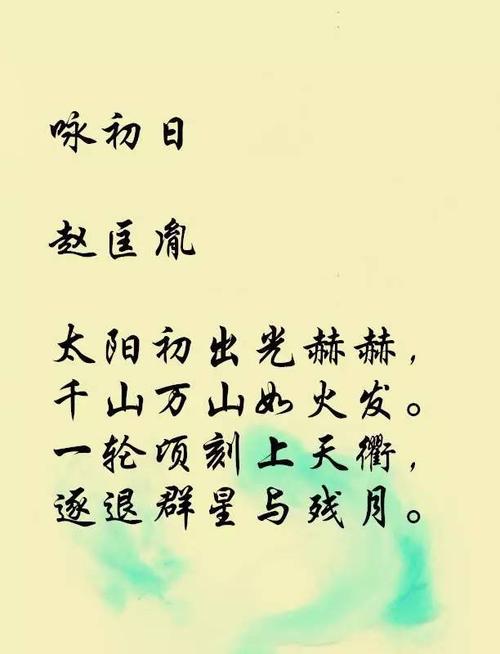 咏初日
赵匡胤
太阳初出光赫赫，
千山万山如火发。
一轮顷刻上天衢，
逐退群星与残月。